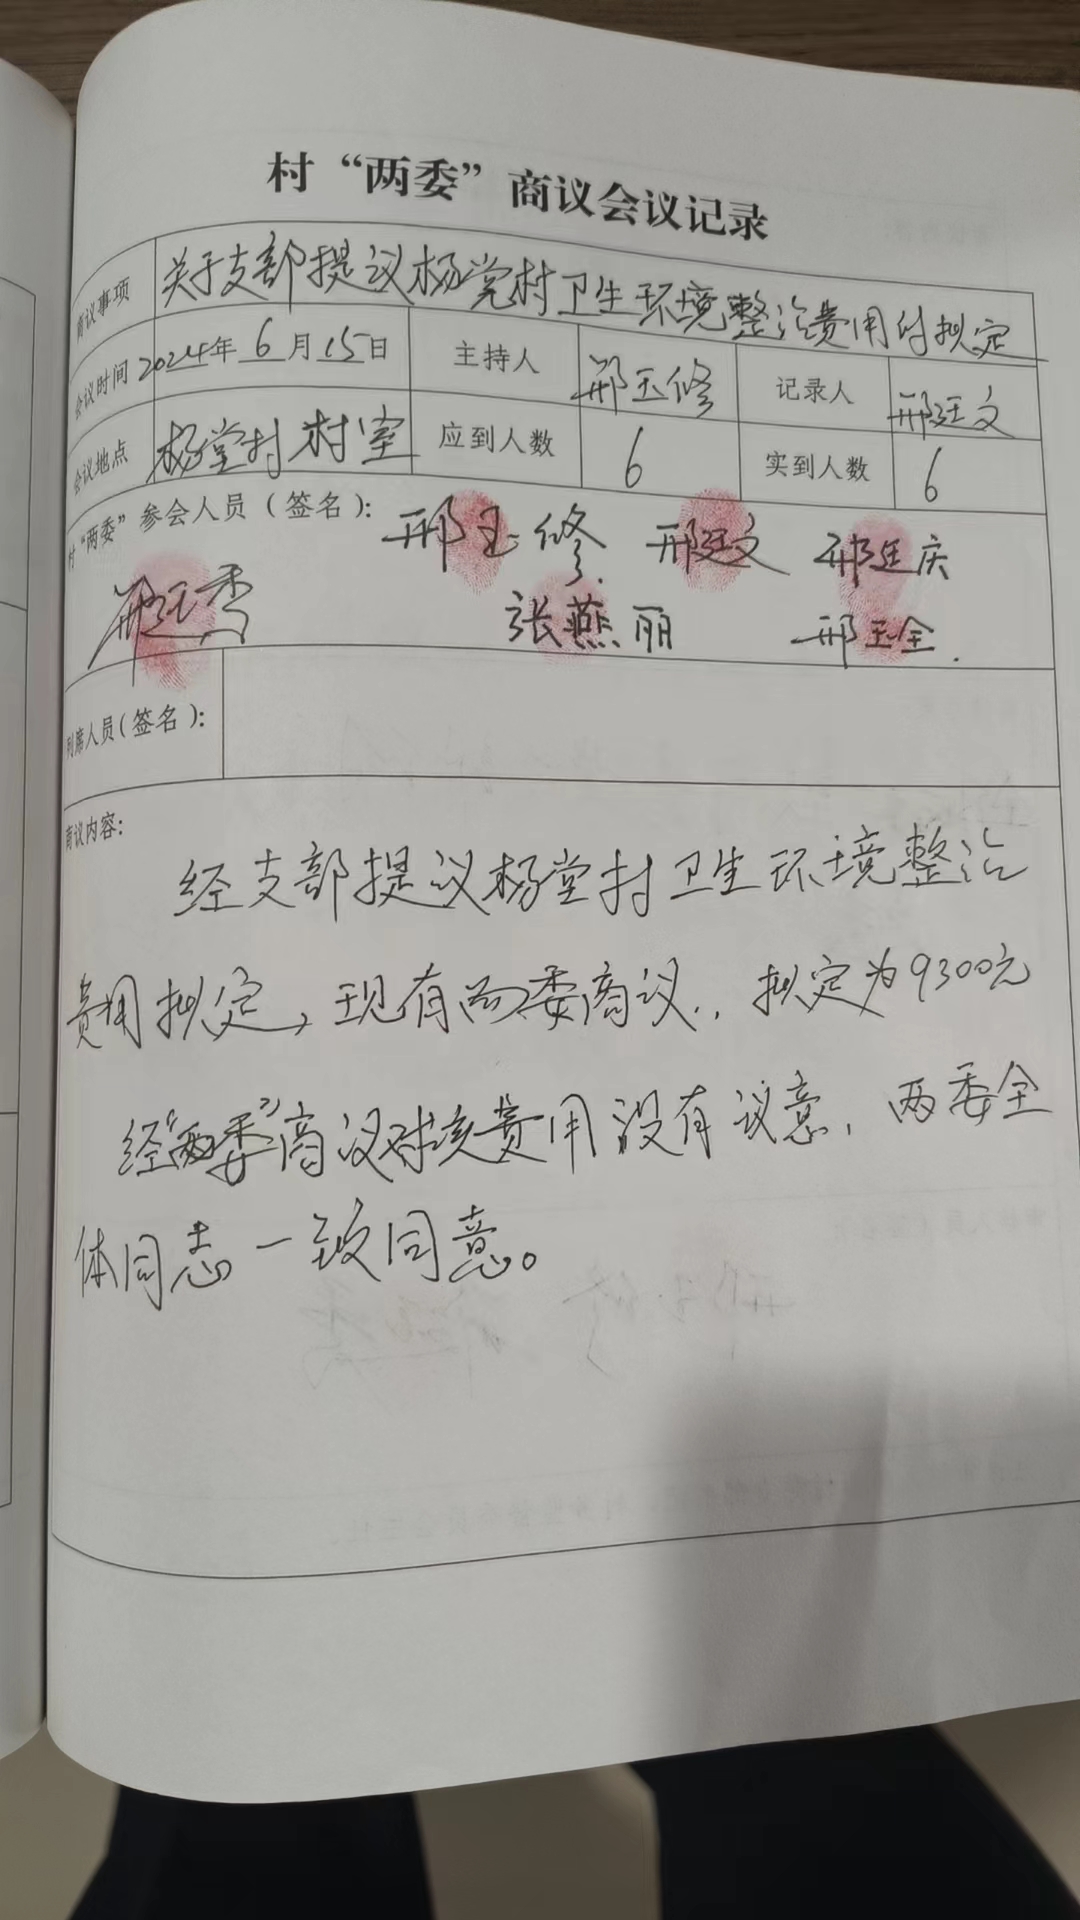 村“两委”商议会议记录
商议事项 关于支部提议杨党村卫生环境整治费用的拟定
会议时间 2024年6月15日 主持人 邢玉修 记录人 邢廷文
会议地点 杨堂村村室 应到人数 6 实到人数 6
村“两委”参会人员（签名）： 邢玉修 邢廷文 邢廷庆
邢廷秀 张燕丽 邢玉全.
列席人员（签名）：
商议内容：
经支部提议杨堂村卫生环境整治
费用拟定，现有两委商议.，拟定为9300元
经“两委”商议对该费用没有议意，两委全
体同志一致同意。